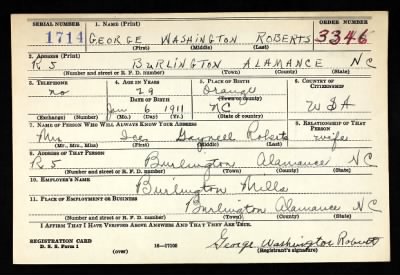 SERIAL NUMBER 1. NAME (Print) ORDER NUMBER
1714 GEORGE WASHINGTON ROBERTS 3346
(First) (Middle) (Last)
2. ADDRESS (Print)
R 5 BURLINGTON ALAMANCE NC
(Number and street or R. F. D. number) (Town) (County) (State)
3. TELEPHONE 4. AGE IN YEARS 5. PLACE OF BIRTH 6. COUNTRY OF CITIZENSHIP
no 29 Orange
DATE OF BIRTH (Town or county)
Jan 6 1911 NC USA
(Exchange) (Number) (Mo.) (Day) (Yr.) (State or country)
7. NAME OF PERSON WHO WILL ALWAYS KNOW YOUR ADDRESS 8. RELATIONSHIP OF THAT PERSON
Mrs Gaynell Roberts wife
(Mr., Mrs., Miss) (First) (Middle) (Last)
9. ADDRESS OF THAT PERSON
R 5 Burlington Alamance NC
(Number and street or R. F. D. number) (Town) (County) (State)
10. EMPLOYER'S NAME
Burlington Mills
11. PLACE OF EMPLOYMENT OR BUSINESS
Burlington Alamance NC
(Number and street or R. F. D. number) (Town) (County) (State)
I AFFIRM THAT I HAVE VERIFIED ABOVE ANSWERS AND THAT THEY ARE TRUE.
REGISTRATION CARD George Washington Roberts
D. S. S. Form 1 (over) 16—17105 (Registrant's signature)